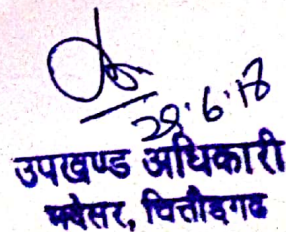 29.6.18
उपखण्ड अधिकारी
भदेसर, चित्तौड़गढ